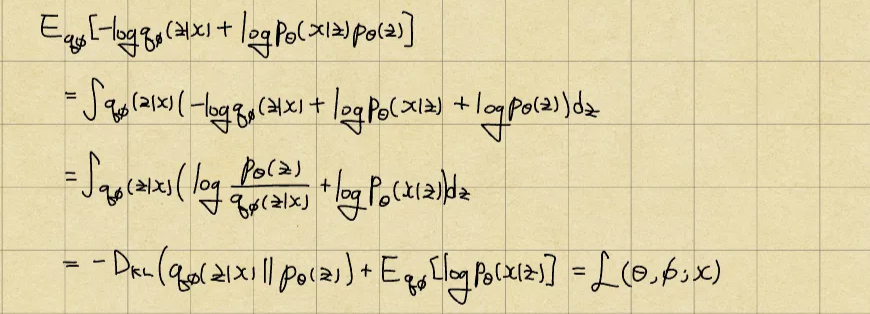 E_{qφ}[-log qφ(z|x) + log pθ(x|z) pθ(z)]
= ∫ qφ(z|x) (-log qφ(z|x) + log pθ(x|z) + log pθ(z)) dz
= ∫ qφ(z|x) ( log pθ(z) / qφ(z|x) + log pθ(x|z) ) dz
= - D_{KL} (qφ(z|x) || pθ(z)) + E_{qφ} [log pθ(x|z)] = ℒ(θ, φ; x)